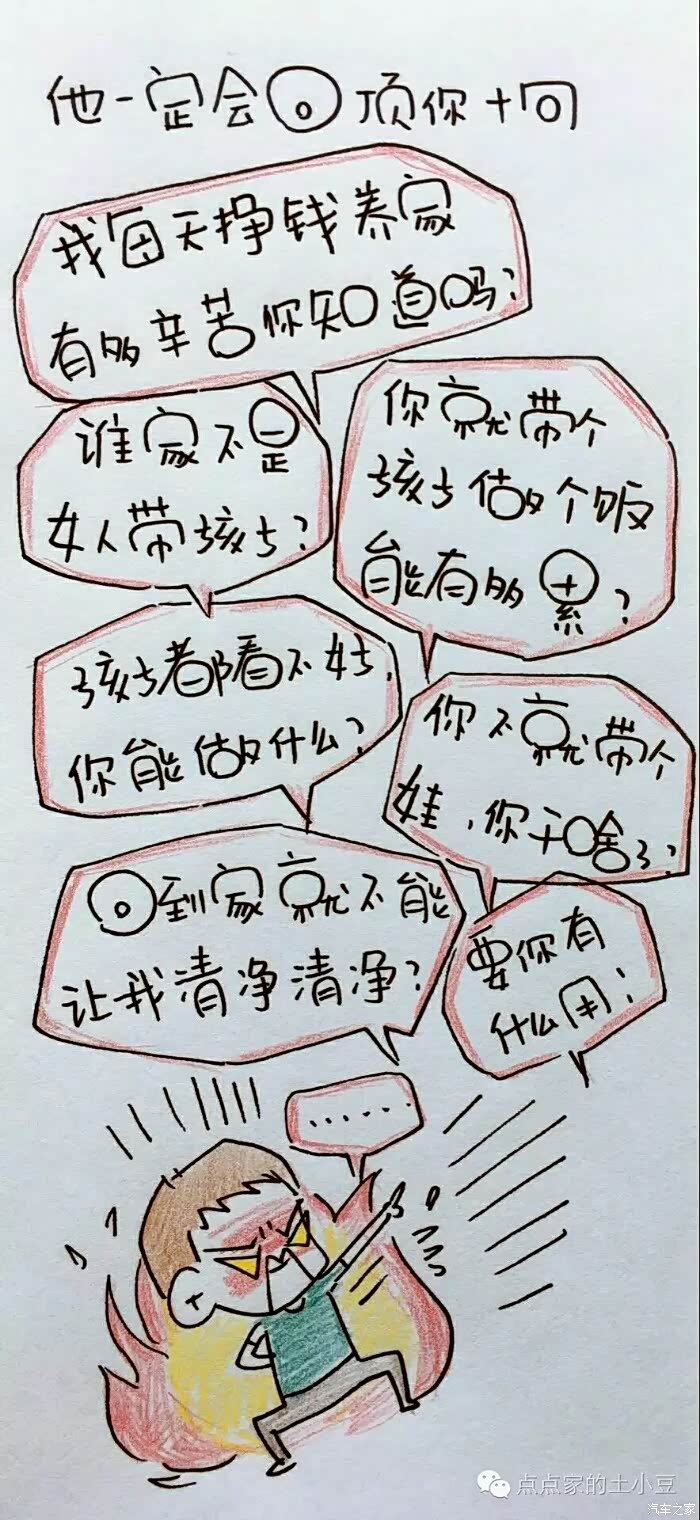 他一定会回顶你十句
我每天挣钱养家
有多辛苦你知道吗?
谁家不是
女人带孩子?
你就带个
孩子做个饭
能有多累?
孩子都看不好,
你能做什么?
你不就带个
娃,你干啥了?
回到家就不能
让我清净清净?
要你有
什么用;
......
点点家的土小豆
汽车之家